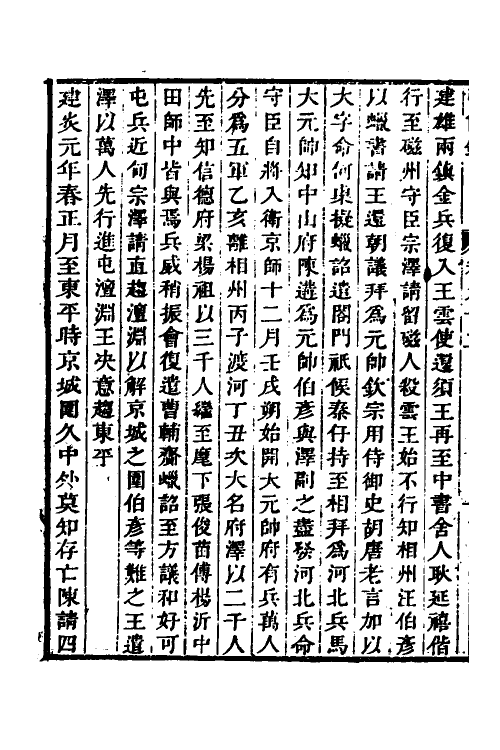 建雄兩鎮金兵復入王雲使還須王再至中書舍人耿延禧偕
行至磁州守臣宗澤請留磁人殺雲王始不行知相州汪伯彥
以蠟書請王還朝議拜爲元帥欽宗用侍御史胡唐老言加以
大字命何㮚擬蠟詔遣閤門祇候秦仔持至相拜爲河北兵馬
大元帥知中山府陳遘爲元帥伯彥與澤副之盡發河北兵命
守臣自將入衞京師十二月壬戌朔始開大元帥府有兵萬人
分爲五軍乙亥離相州丙子渡河丁丑次大名府澤以二千人
先至知信德府梁楊祖以三千人繼至麾下張俊苗傅楊沂中
田師中皆與焉兵威稍振會復遣曹輔齎蠟詔至方議和好可
屯兵近甸宗澤請直趨澶淵以解京城之圍伯彥等難之王遣
澤以萬人先行進屯澶淵王决意趨東平
建炎元年春正月至東平時京城圍久中外莫知存亡陳請四